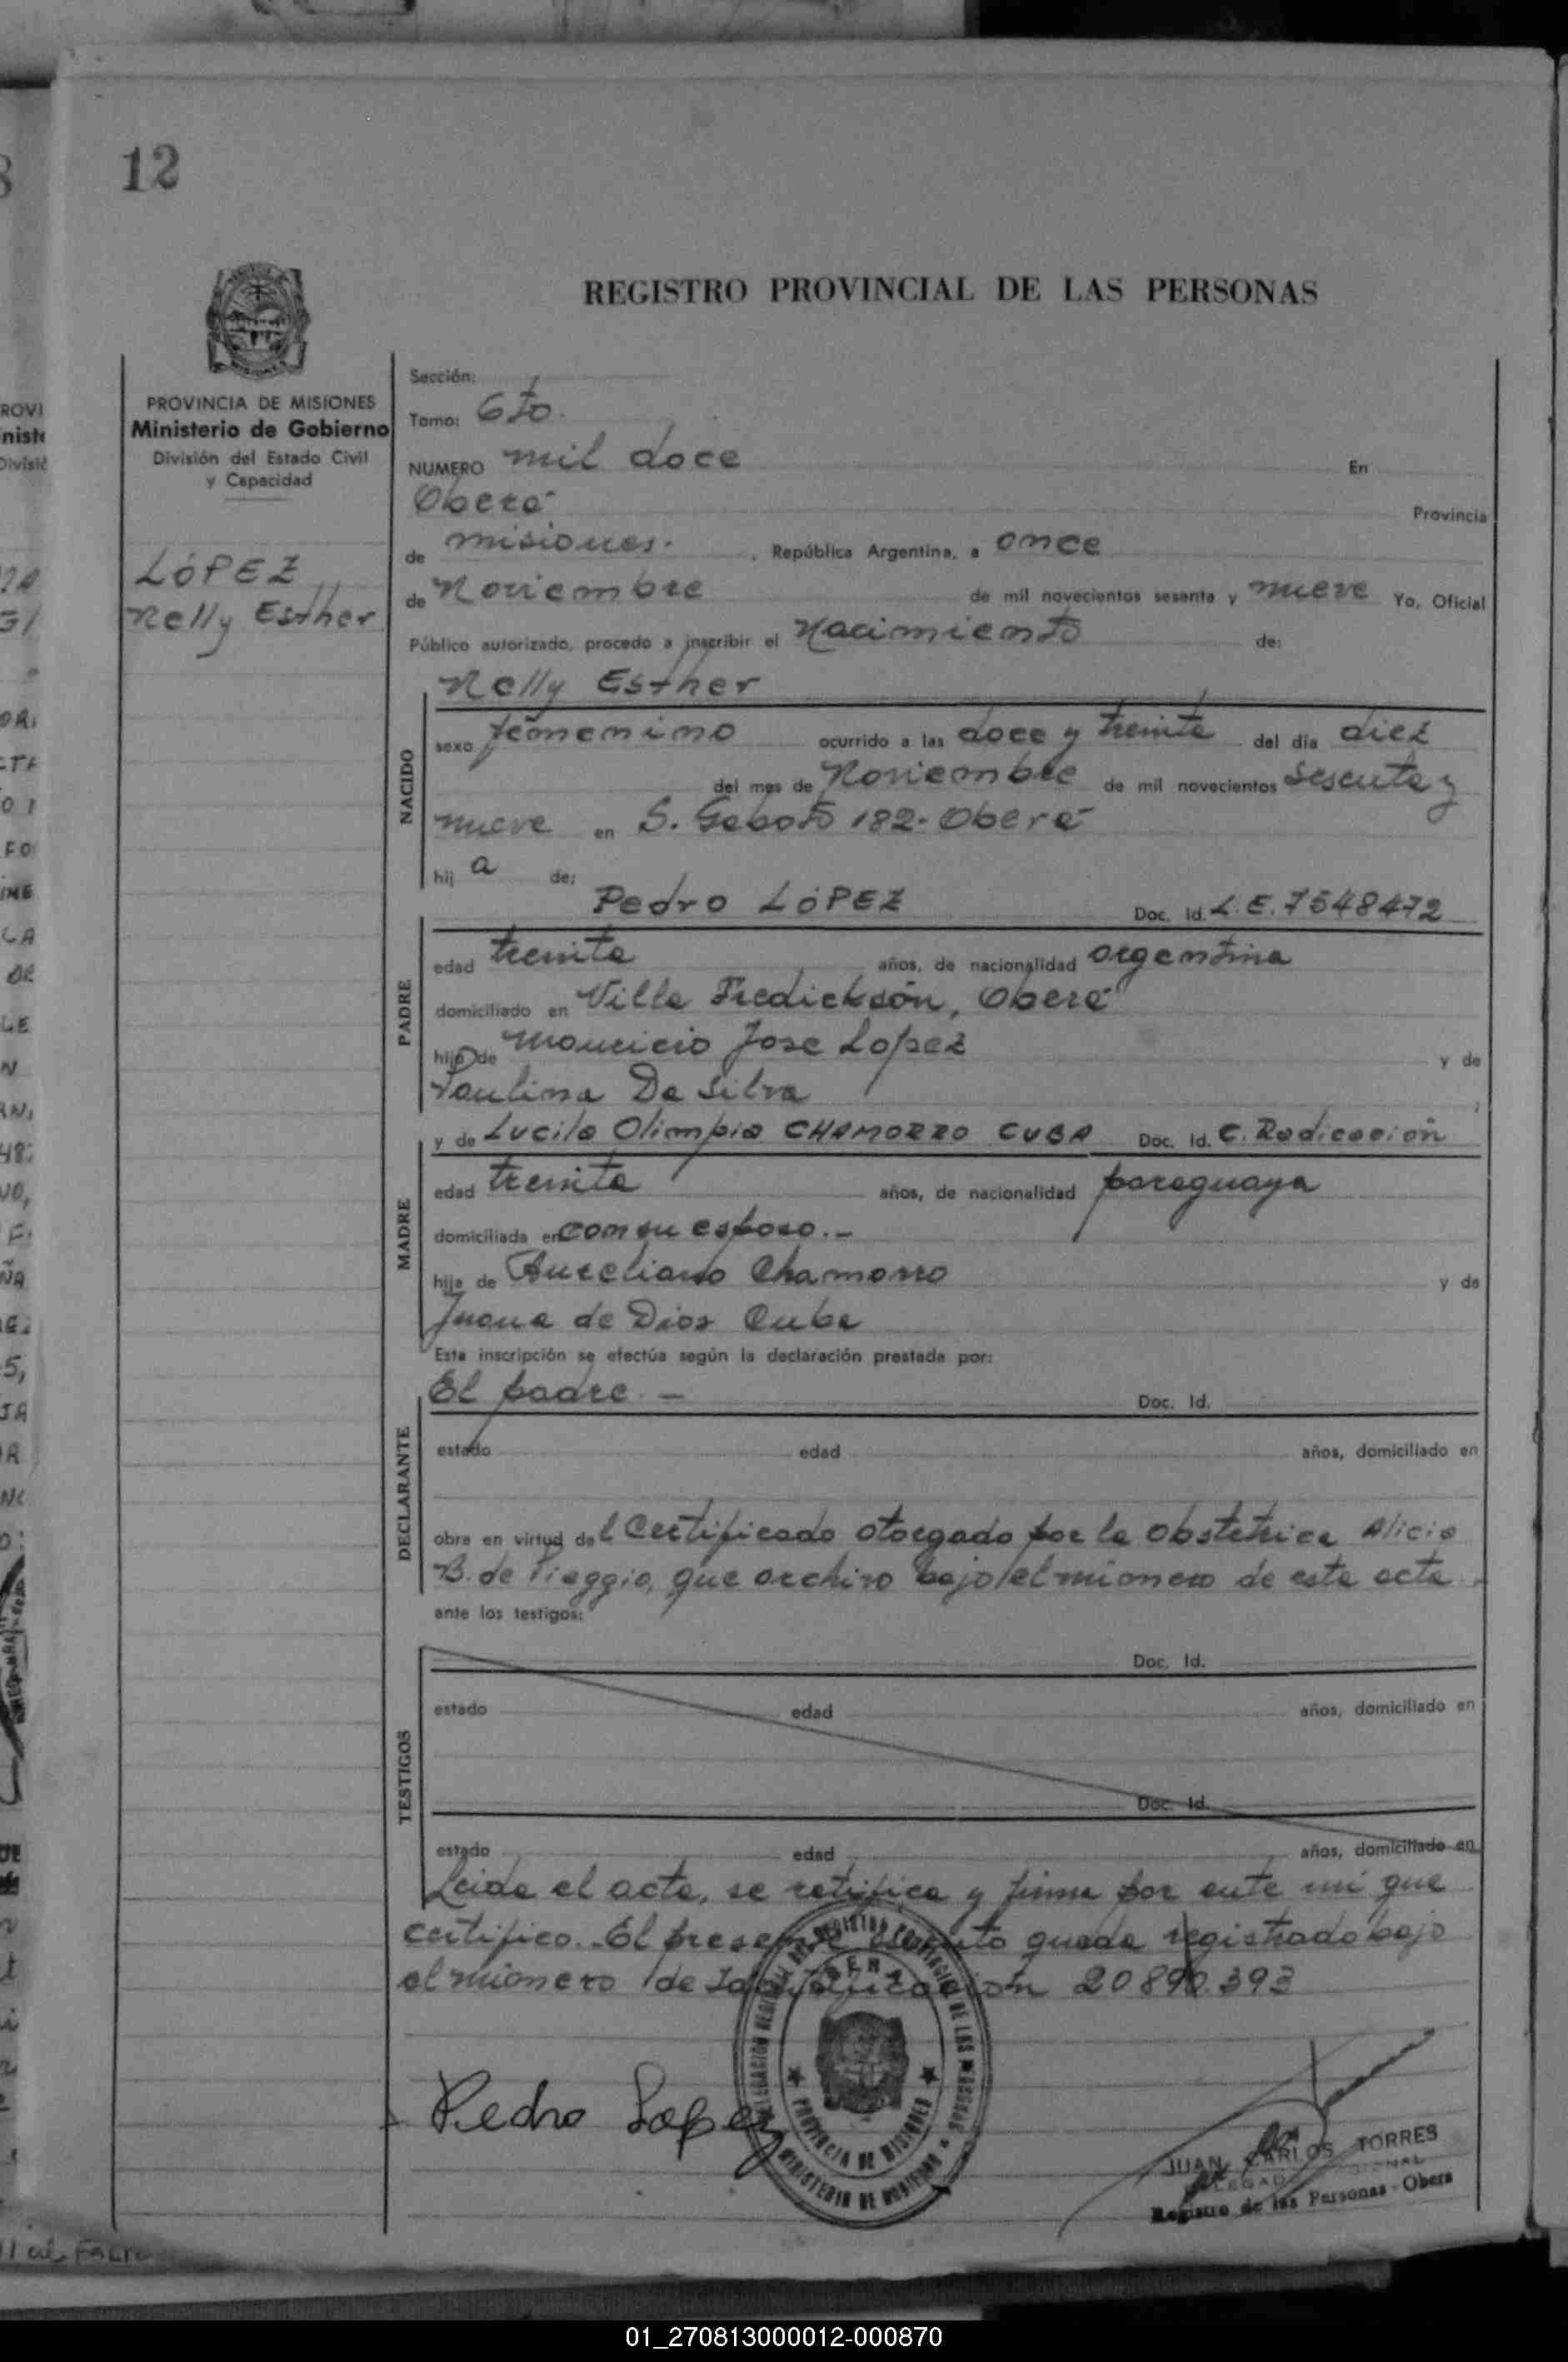 12
REGISTRO PROVINCIAL DE LAS PERSONAS
PROVINCIA DE MISIONES
Ministerio de Gobierno
División del Estado Civil
y Capacidad
LóPEZ
Nelly Esther
Sección:
Tomo: 6to.
NUMERO mil doce En
Oberá Provincia
de misiones. , República Argentina, a once
de Noviembre de mil novecientos sesenta y nueve Yo, Oficial
Público autorizado, procedo a inscribir el Nacimiento de:
Nelly Esther
NACIDO
sexo femenino ocurrido a las doce y treinta del día diez
del mes de Noviembre de mil novecientos sesenta y
nueve en S. Gaboto 182- Oberá
hij a de:
Pedro LóPEZ Doc. Id. L.E. 7548472
PADRE
edad treinta años, de nacionalidad argentina
domiciliado en Villa Fredickson, Oberá
hijo de Mauricio Jose Lopez y de
Paulina Da Silva
y de Lucila Olimpia CHAMORRO CUBA Doc. Id. C. Radicación
MADRE
edad treinta años, de nacionalidad paraguaya
domiciliada en con su esposo.-
hija de Aureliano Chamorro y de
Juana de Dios Cuba
Esta inscripción se efectúa según la declaración prestada por:
El padre.- Doc. Id.
DECLARANTE
estado edad años, domiciliado en
obra en virtud del Certificado otorgado por la obstetrica Alicia
B. de Piaggio, que archivo bajo el número de esta acta.
ante los testigos:
Doc. Id.
TESTIGOS
estado edad años, domiciliado en
Doc. Id.
estado edad años, domiciliado en
Leida el acta, se ratifica y firma por ante mi que
certifico.- El presente queda registrado bajo
el número de Identificación 20890.393
Pedro Lopez
PROVINCIA DE MISIONES
MINISTERIO DE GOBIERNO
JUAN CARLOS TORRES
Registro de las Personas - Oberá
01_270813000012-000870